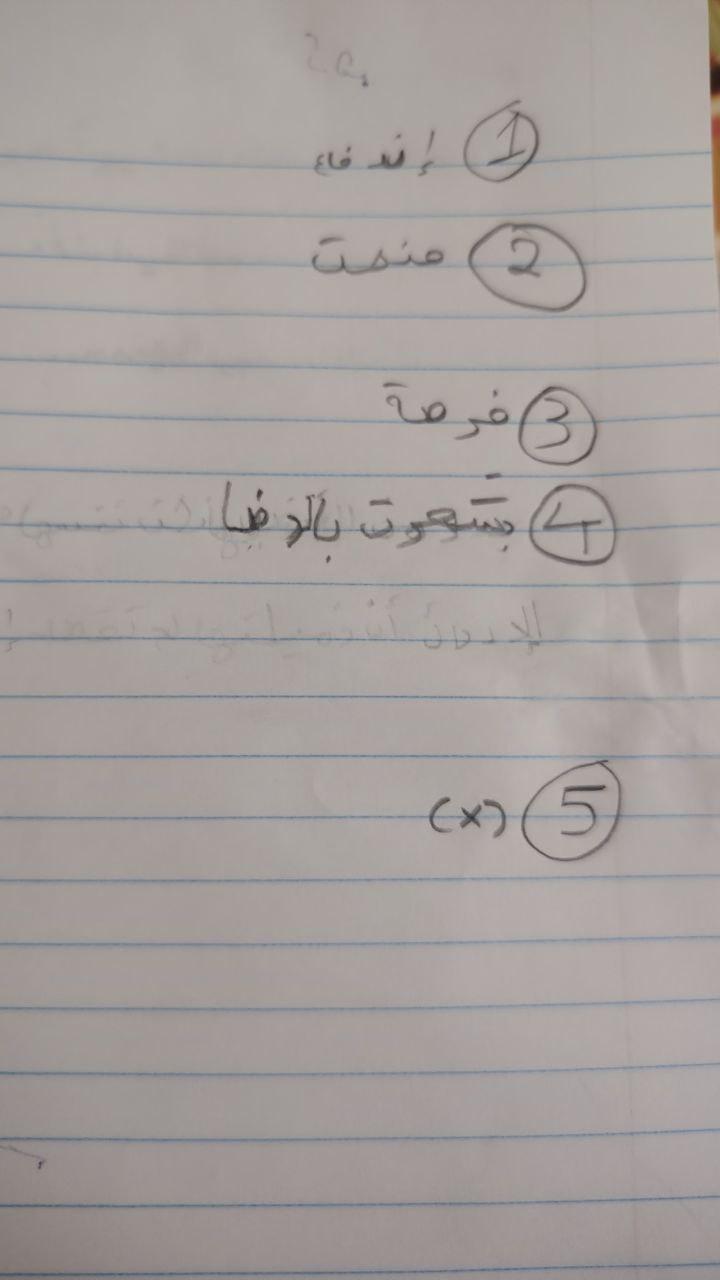 ① إندفاع
② منحت
③ فرصة
④ بالرضا
⑤ (x)